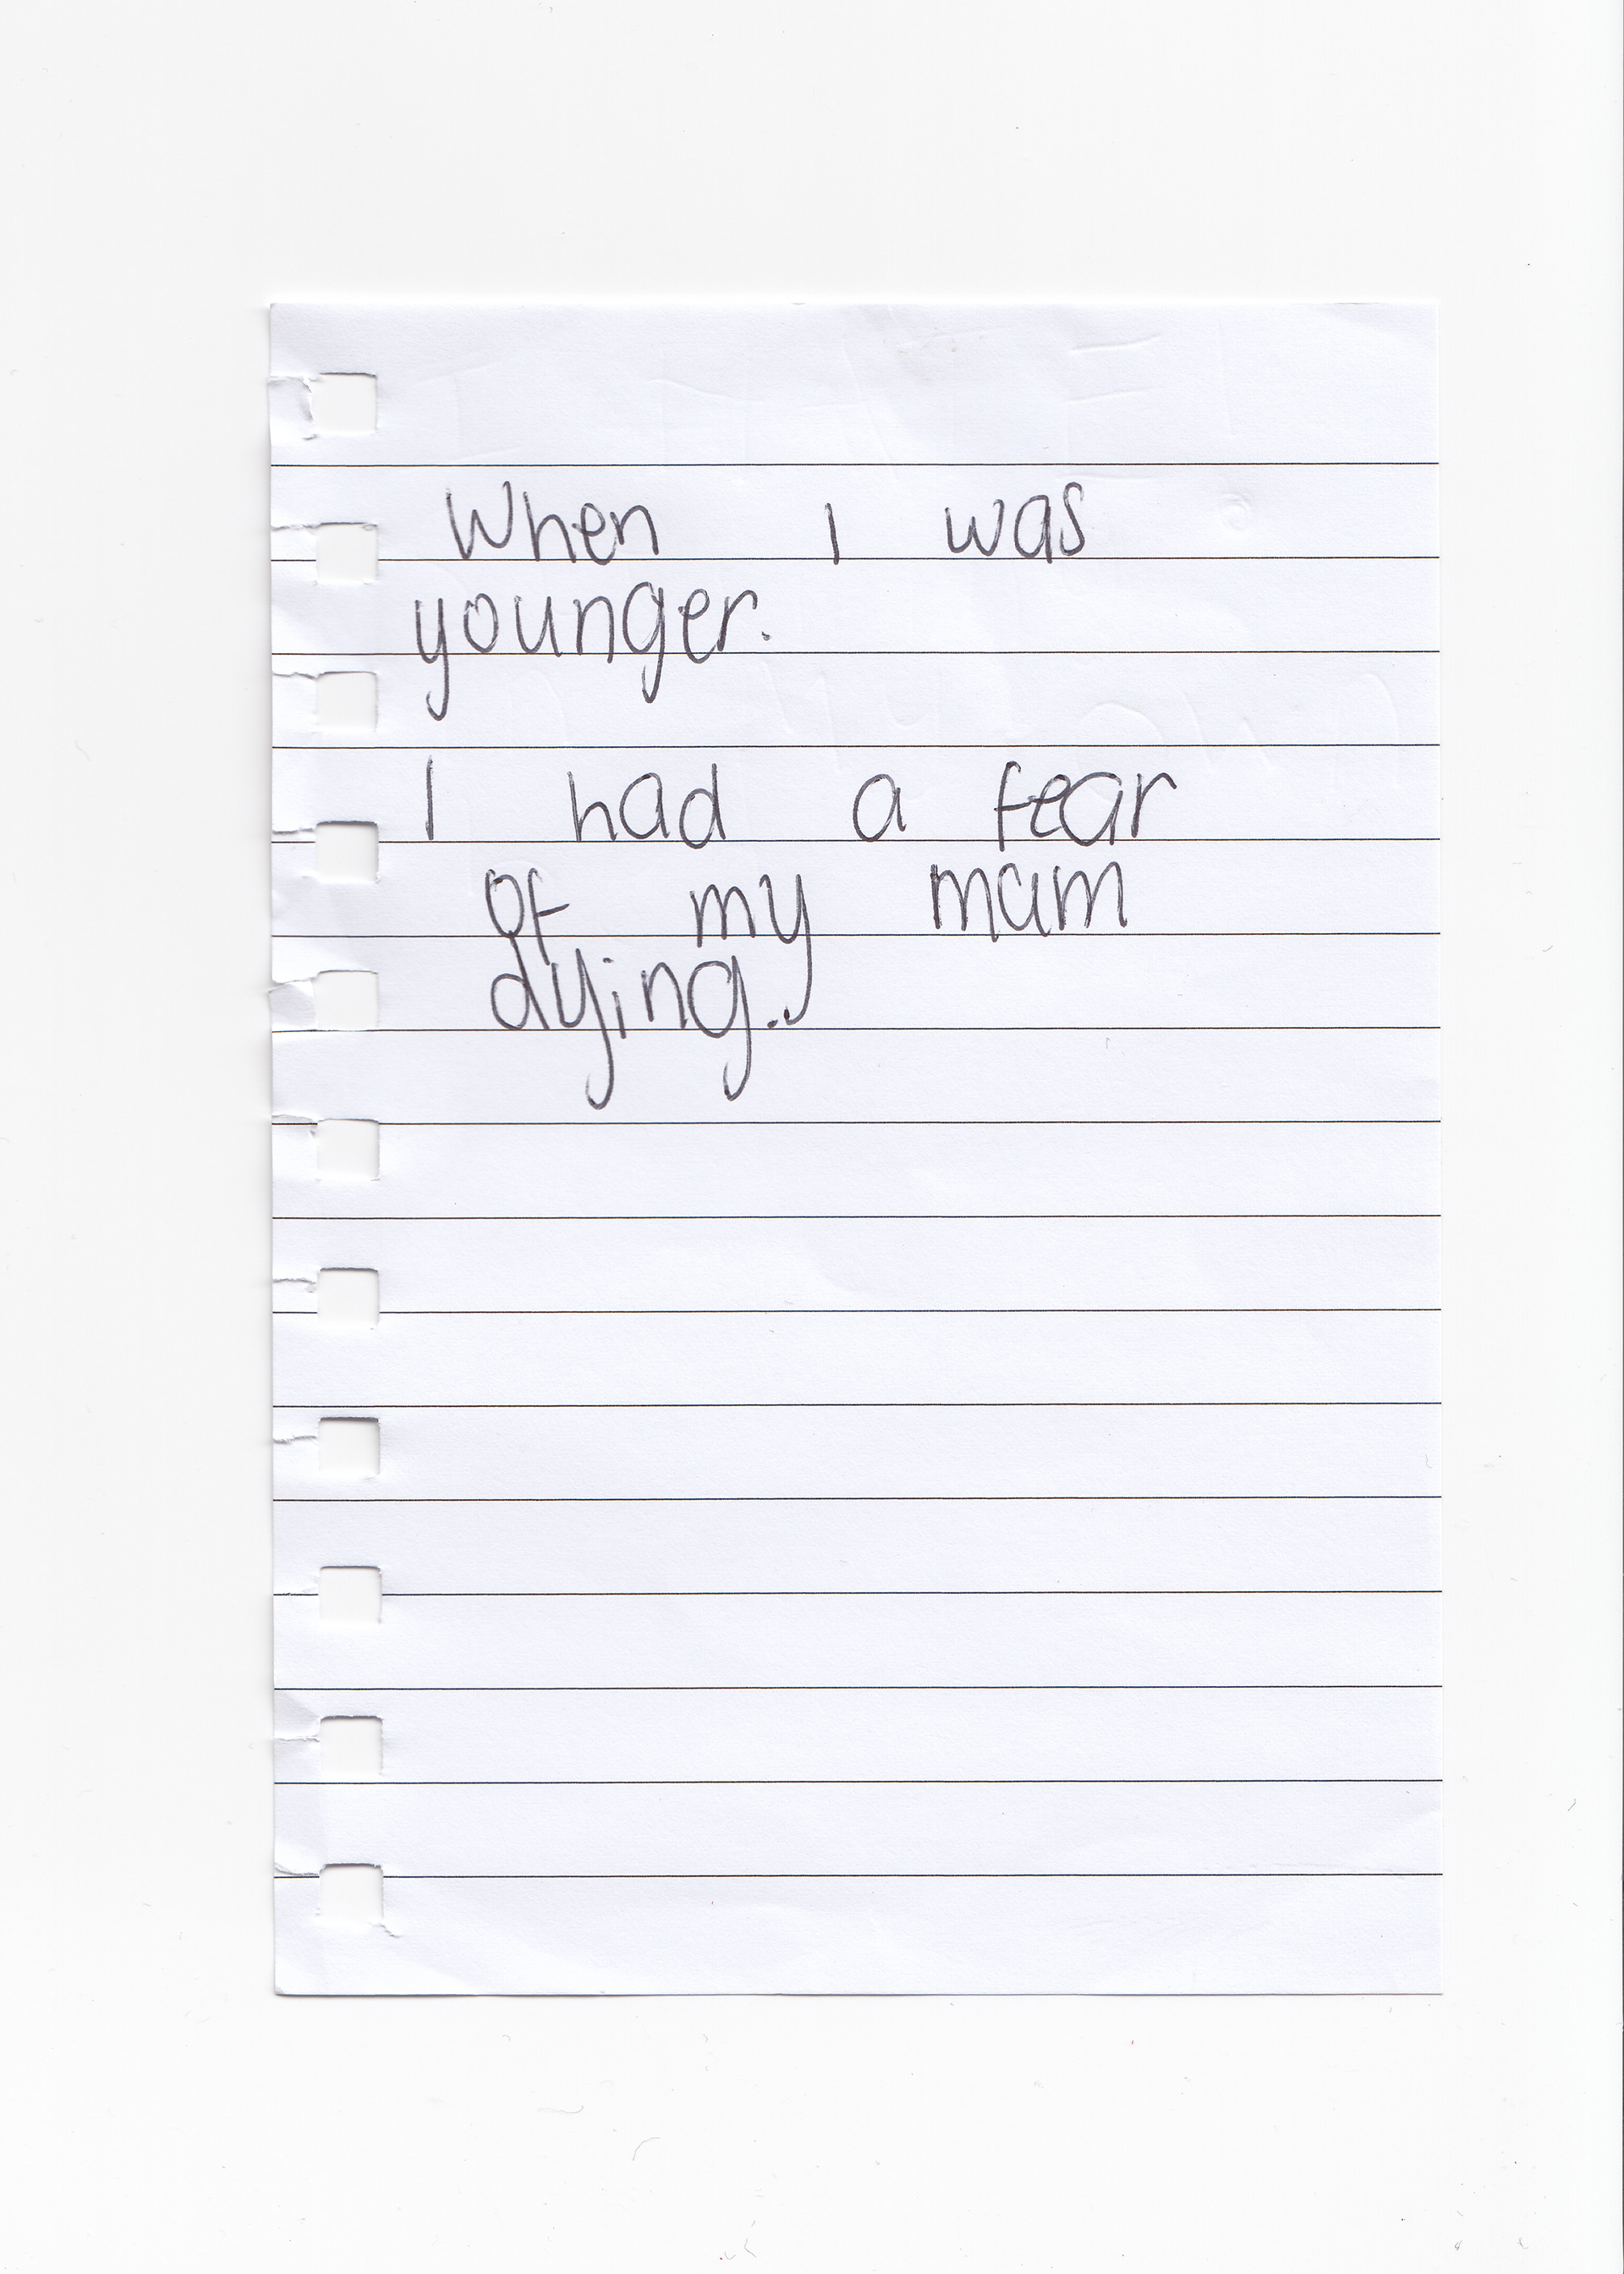 When I was
younger.
I had a fear
of my mam
dying..